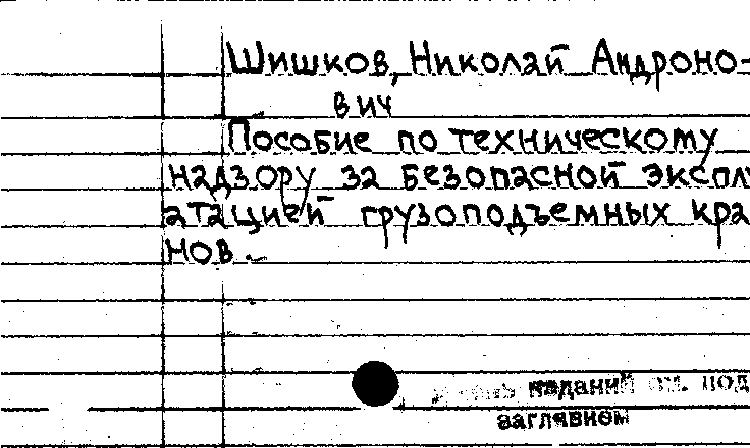 Шишков, Николай Андроно-
вич
Пособие по техническому
надзору за безопасной эксплу
атацией грузоподъемных кра
нов
изданий см. под
заглавием